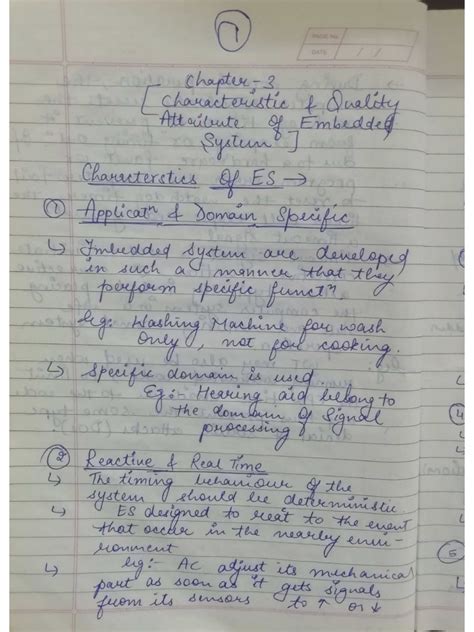 1
PAGE NO.
DATE / /
Chapter-3
[Characteristic & Quality
Attribute Of Embedded
System]
Characterstics Of ES →
① Applicatⁿ & Domain Specific
↳ Imbedded System are developed
in such a manner that they
perform specific functⁿ.
Eg: Washing Machine for wash
only, not for cooking.
↳ Specific domain is used
Eg:- Hearing aid belong to
the domain of Signal
processing
② Reactive & Real Time
↳ The timing behaviour of the
system should be deterministic
↳ ES designed to reat to the event
that occur in the nearby envi-
ronment
↳ eg:- AC adjust its mechanical
part as soon as it gets signals
from its sensors to ↑ or ↓